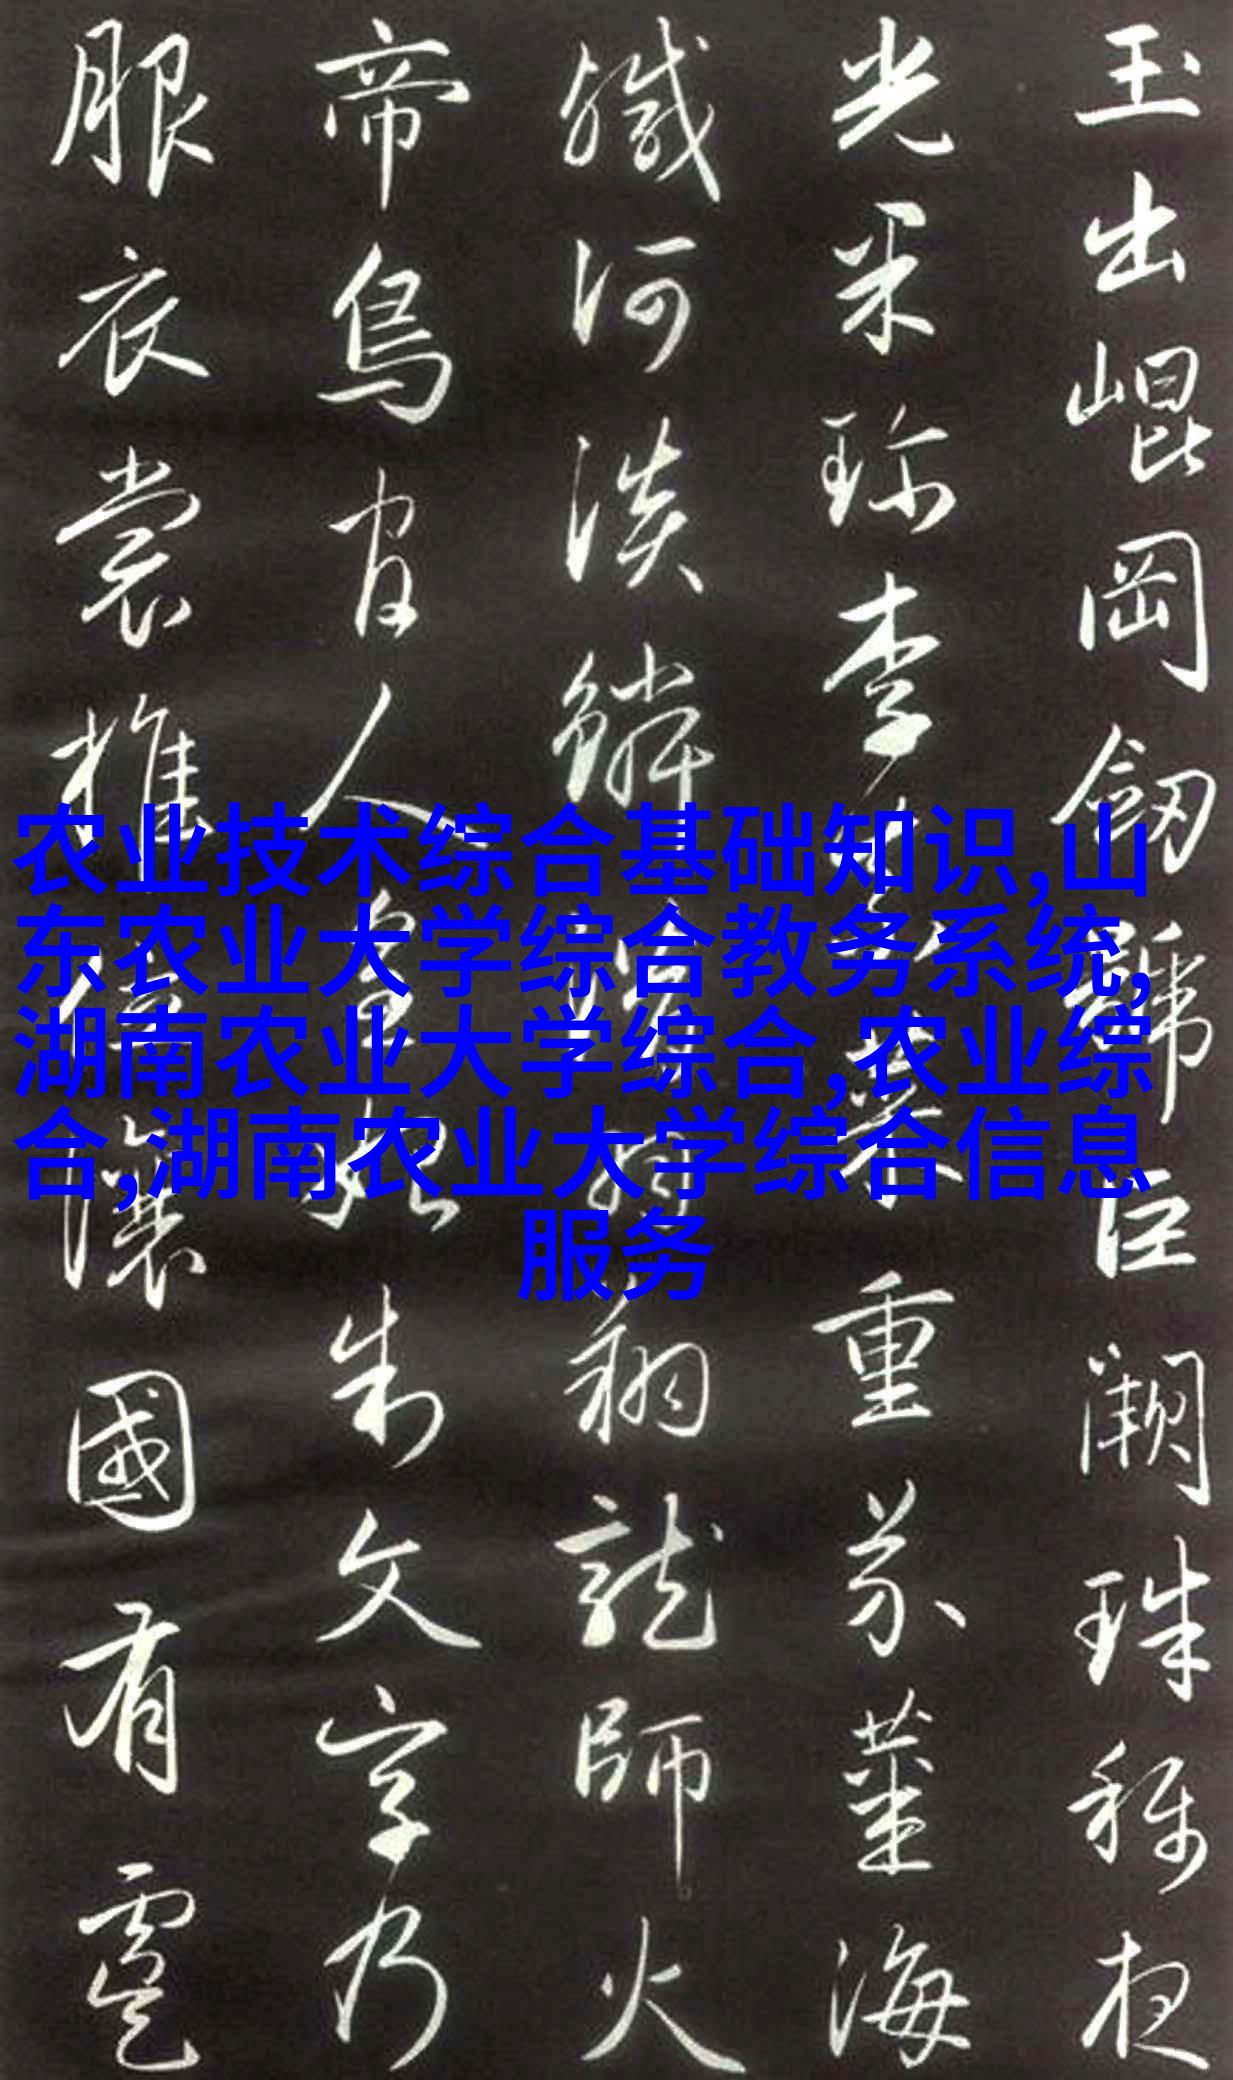 玉出崐岡劔號巨闕珠稱夜
光果珍李柰菜重芥薑海
鹹河淡鱗潛羽翔龍師火
帝鳥官人皇始制文字乃
服衣裳推位讓國有虞
农业技术综合基础知识,山
东农业大学综合教务系统,
湖南农业大学综合,农业综
合,湖南农业大学综合信息
服务